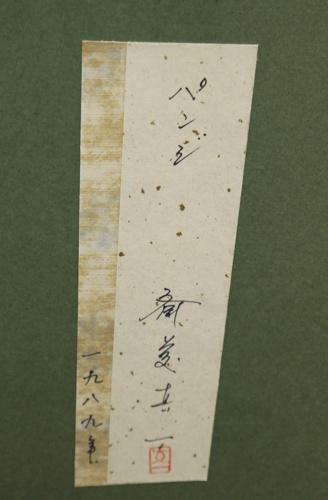 パンジ
斎藤真一
一九八九年